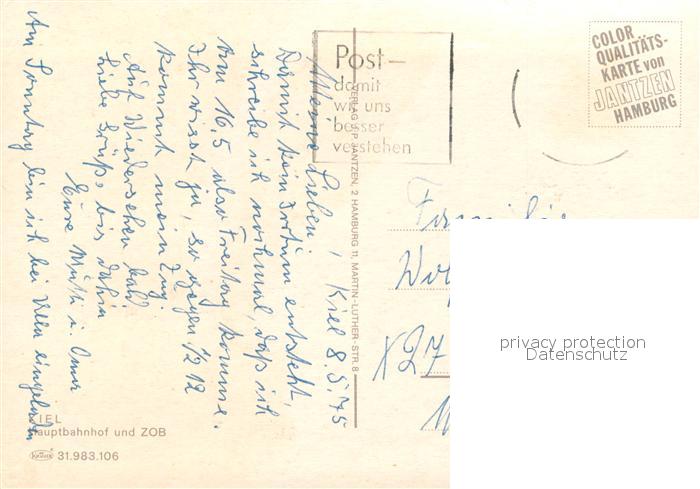 Kiel 8.5.75
Meine Lieben,
Damit kein Irrtum entsteht,
schreibe ich nochmal, daß ich
am 16.5 also Freitag komme.
Ihr wisst ja, so gegen 1/2 12
kommt mein Zug.
Auf Wiedersehen bald
Liebe Grüße bis dahin
Eure Mutti u. Oma
Am Sonntag bin ich bei Ellen eingeladen
KIEL
Hauptbahnhof und ZOB
Krüger 31.983.106
VERLAG S.P. JANTZEN, 2 HAMBURG 11, MARTIN-LUTHER-STR. 8
Post-
damit
wir uns
besser
verstehen
COLOR
QUALITÄTS-
KARTE von
JANTZEN
HAMBURG
Familie
X27
privacy protection
Datenschutz